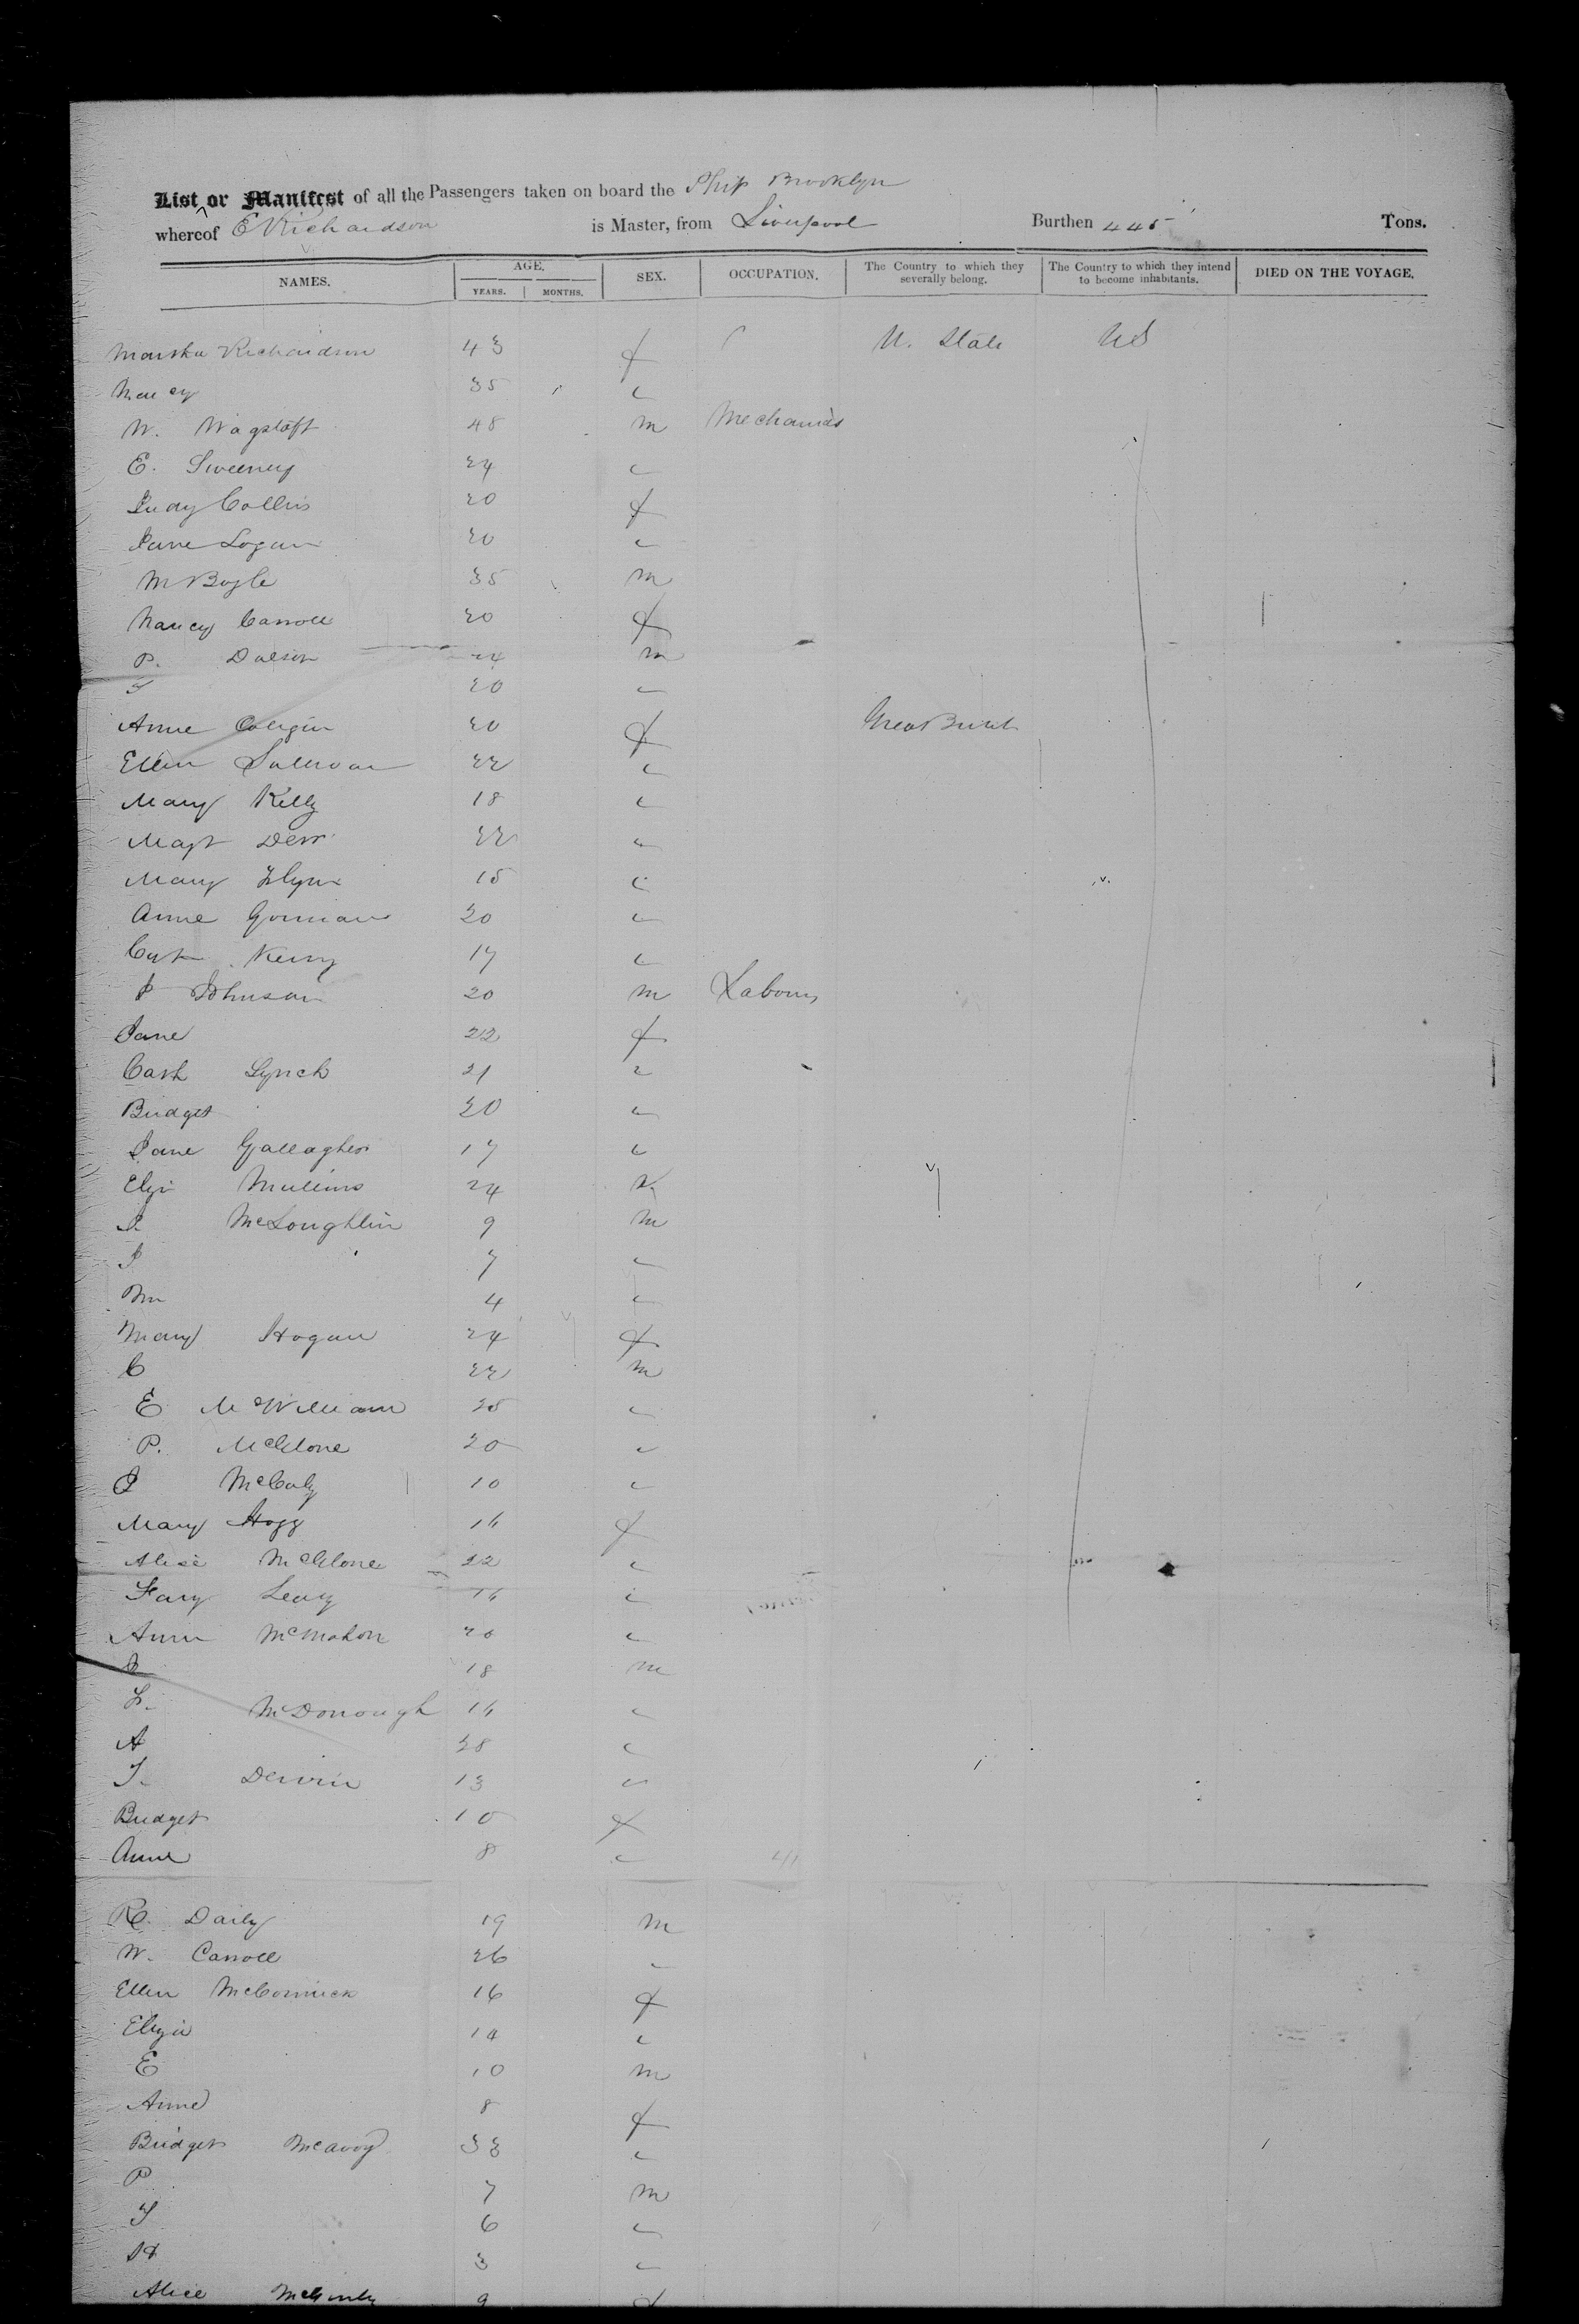 List or Manifest of all the Passengers taken on board the Ship Brooklyn
whereof E Richardson is Master, from Liverpool Burthen 445 Tons.
NAMES. AGE. YEARS. MONTHS. SEX. OCCUPATION. The Country to which they severally belong. The Country to which they intend to become inhabitants. DIED ON THE VOYAGE.
Richardson 43 f U. State US
Nancy 35 "
W. Wagstaff 48 m Mechanics
E. Sweeney 24 "
Judy Collins 20 f
Jane Logan 20 "
M Boyle 35 m
Nancy Carroll 20 f
P. 24 m
20 "
Anne 20 f
Ellen Sullivan 22 "
Mary Kelly 18 "
Magt 22 "
Mary Flynn 15 "
Anne Gorman 20 "
17 "
J Johnson 20 m
Jane 22 f
Cath Lynch 21 "
Bridget 20 "
Jane Gallagher 17 "
Mullins 24
J. McLoughlin 9 m
J 7 "
Wm 4 "
Mary Hogan 24 f
C 22 m
E McWilliam "
P. McGlone 20 "
J 10 "
Mary Hogg 16 f
McGlone 22 "
Leary 16 "
Ann McMahon "
J 18 m
McDonough 16 "
A 38 "
13 "
Bridget 10 f
Anne 8 "
R. Daily 19 m
W. Carroll 26 "
Ellen McCormick 16 f
Eliza 14 "
E 10 m
Anne 8 f
Bridget McAvoy 33 "
P 7 m
6 "
3 "
Alice 9 f